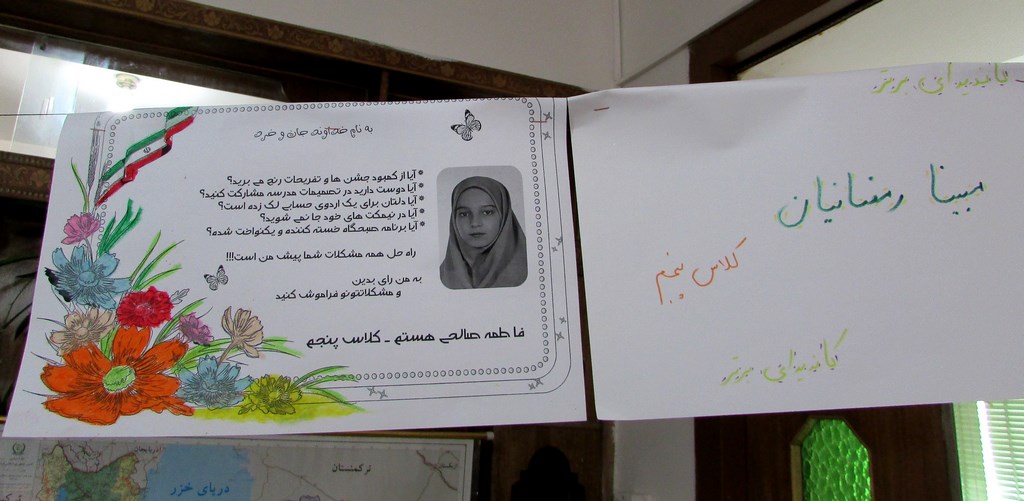 به نام خداوند جان و خرد
* آیا از کمبود جشن ها و تفریحات رنج می برید؟
* آیا دوست دارید در تصمیمات مدرسه مشارکت کنید؟
* آیا دلتان برای یک اردوی حسابی لک زده است؟
* آیا در نیمکت های خود جا نمی شوید؟
* آیا برنامه صبحگاه خسته کننده و یکنواخت شده؟
راه حل همه مشکلات شما پیش من است!!!
به من رای بدین
و مشکلاتتونو فراموش کنید
فاطمه صالحی هستم - کلاس پنجم
کاندیدای برتر
مبینا رمضانیان
کلاس پنجم
کاندیدای برتر
ترکمنستان
دریای خزر